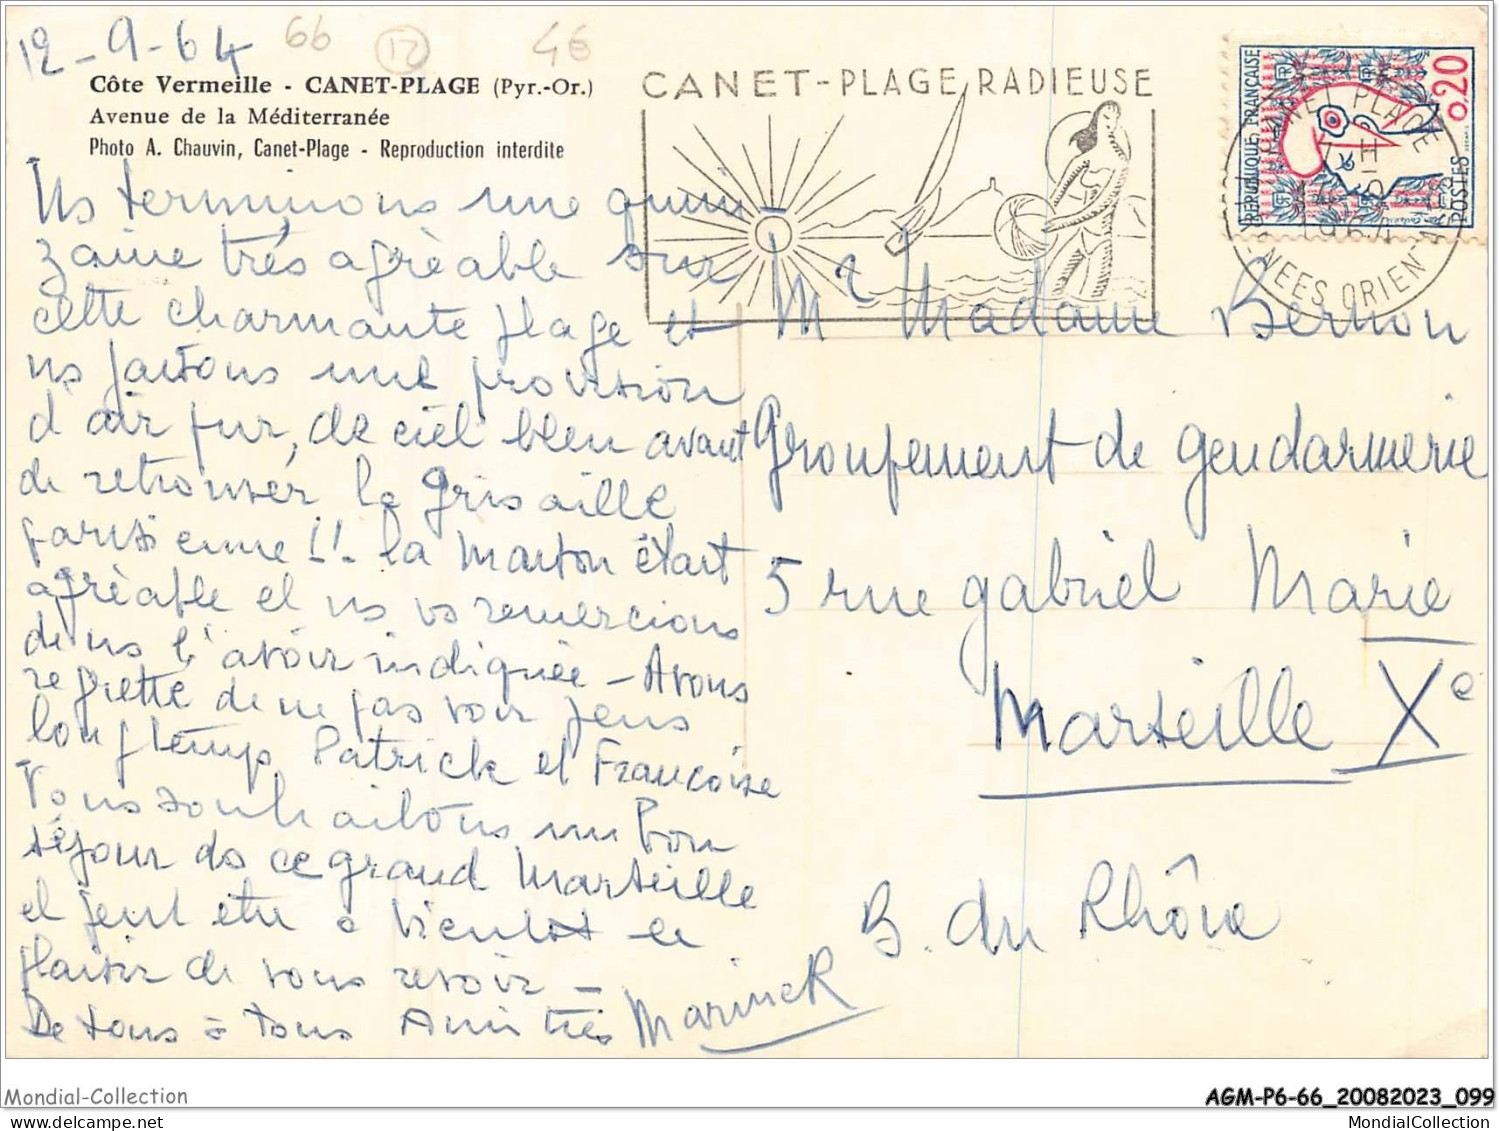 12-9-64
66
12
4€
Côte Vermeille - CANET-PLAGE (Pyr.-Or.)
Avenue de la Méditerranée
Photo A. Chauvin, Canet-Plage - Reproduction interdite
CANET-PLAGE RADIEUSE
REPUBLIQUE FRANÇAISE
0,20
POSTES
CANET PLAGE
1964
PYRENEES ORIENTALES
Ns terminons une quin-
zaine très agréable sur
cette charmante plage et
ns faisons une provision
d'air pur, de ciel bleu avant
de retrouver la grisaille
parisienne !!. la maison était
agréable et ns vs remercions
de ns l'avoir indiquée - Avons
regretté de ne pas voir plus
longtemps Patrick et Françoise
Vous souhaitons un bon
séjour ds ce grand Marseille
et peut être à bientôt le
plaisir de vous revoir -
De tous à tous Amitiés
Mr Madame Bernon
Groupement de gendarmerie
5 rue gabriel Marie
Marseille Xe
B. du Rhône
Mondial-Collection
AGM-P6-66_20082023_099
MondialCollection